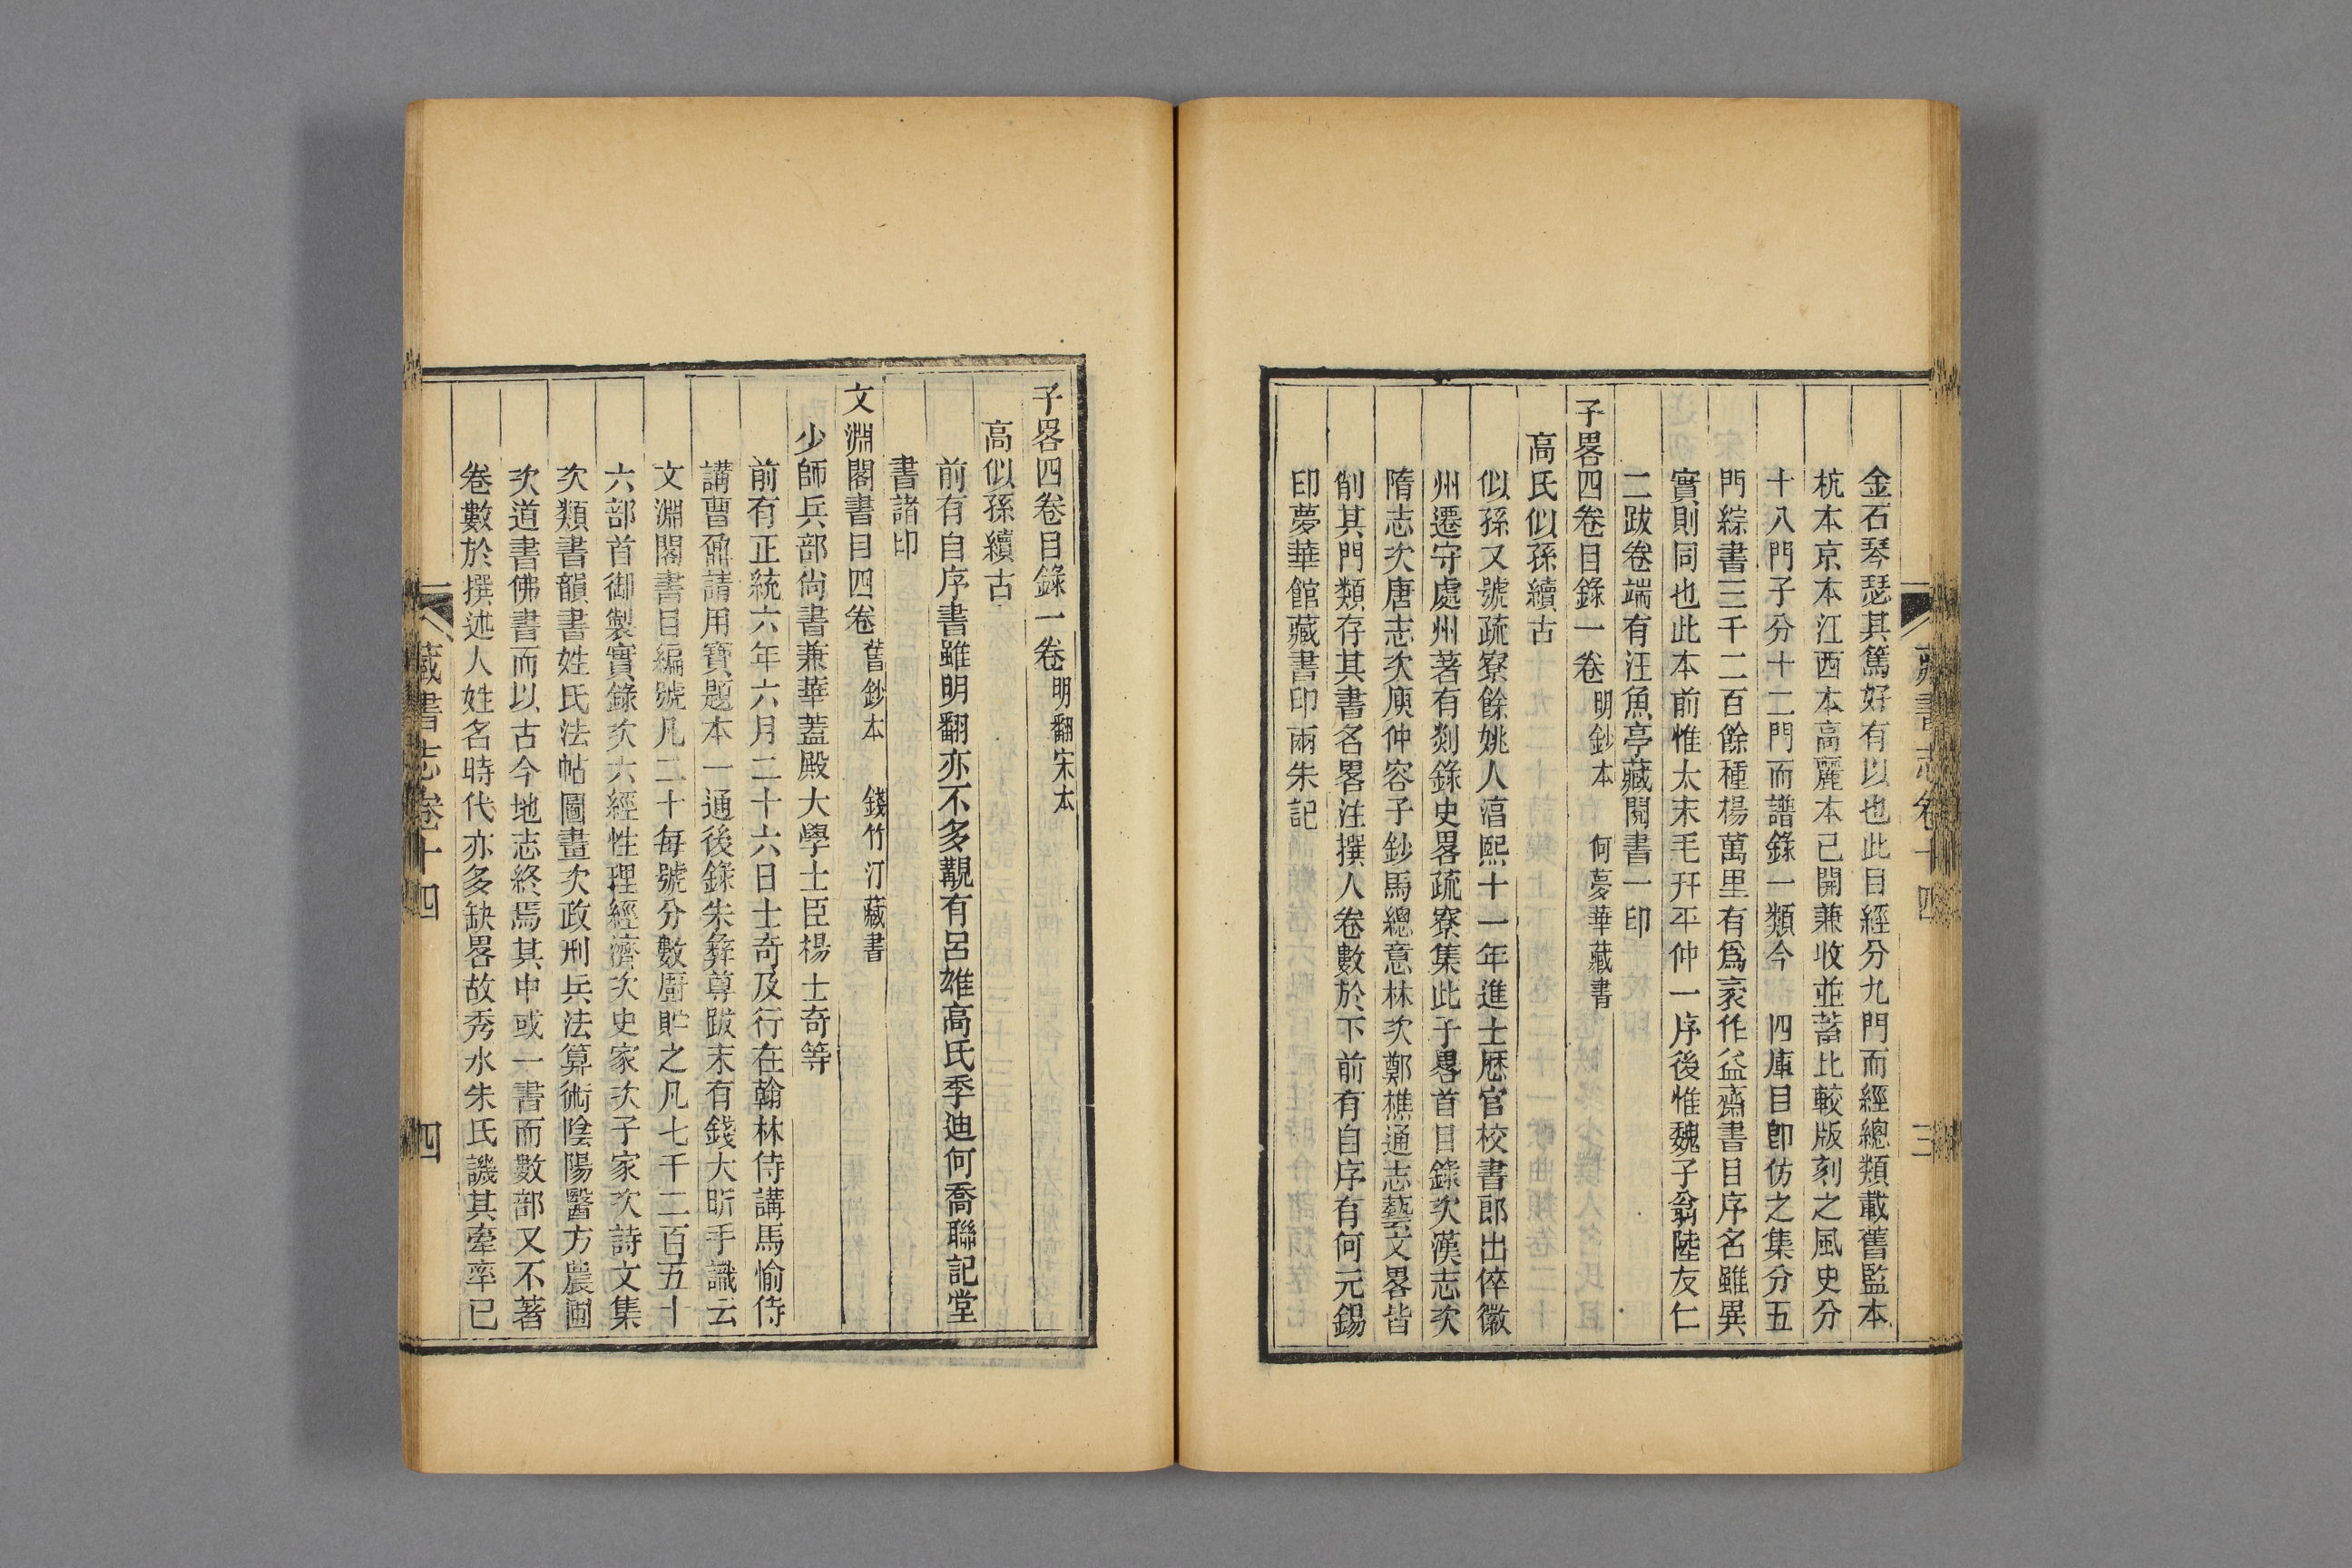 金石琴瑟其篤好有以也此目經分九門而經總類載舊監本
杭本京本江西本高麗本已開兼收並蓄比較版刻之風史分
十八門子分十二門而譜錄一類今 四庫目卽仿之集分五
門綜書三千二百餘種楊萬里有爲家作益齋書目序名雖異
實則同也此本前惟太末毛幵平仲一序後惟魏子翁陸友仁
二跋卷端有汪魚亭藏閱書一印
子畧四卷目錄一卷 明鈔本 何夢華藏書
高氏似孫續古
似孫又號疏寮餘姚人淳熙十一年進士歷官校書郎出倅徽
州遷守處州著有剡錄史畧疏寮集此子畧首目錄次漢志次
隋志次唐志次庾仲容子鈔馬總意林次鄭樵通志藝文畧皆
削其門類存其書名畧注撰人卷數於下前有自序有何元錫
印夢華館藏書印兩朱記
藏書志卷十四 三
子畧四卷目錄一卷 明翻宋本
高似孫續古
前有自序書雖明翻亦不多覯有呂雄高氏季迪何喬聯記堂
書諸印
文淵閣書目四卷 舊鈔本 錢竹汀藏書
少師兵部尙書兼華蓋殿大學士臣楊士奇等
前有正統六年六月二十六日士奇及行在翰林侍講馬愉侍
講曹鼐請用寶題本一通後錄朱彝尊跋末有錢大昕手識云
文淵閣書目編號凡二十每號分數廚貯之凡七千二百五十
六部首御製實錄次六經性理經濟次史家次子家次詩文集
次類書韻書姓氏法帖圖畫次政刑兵法算術陰陽醫方農圃
次道書佛書而以古今地志終焉其中或一書而數部又不著
卷數於撰述人姓名時代亦多缺畧故秀水朱氏譏其牽率已
藏書志卷十四 四